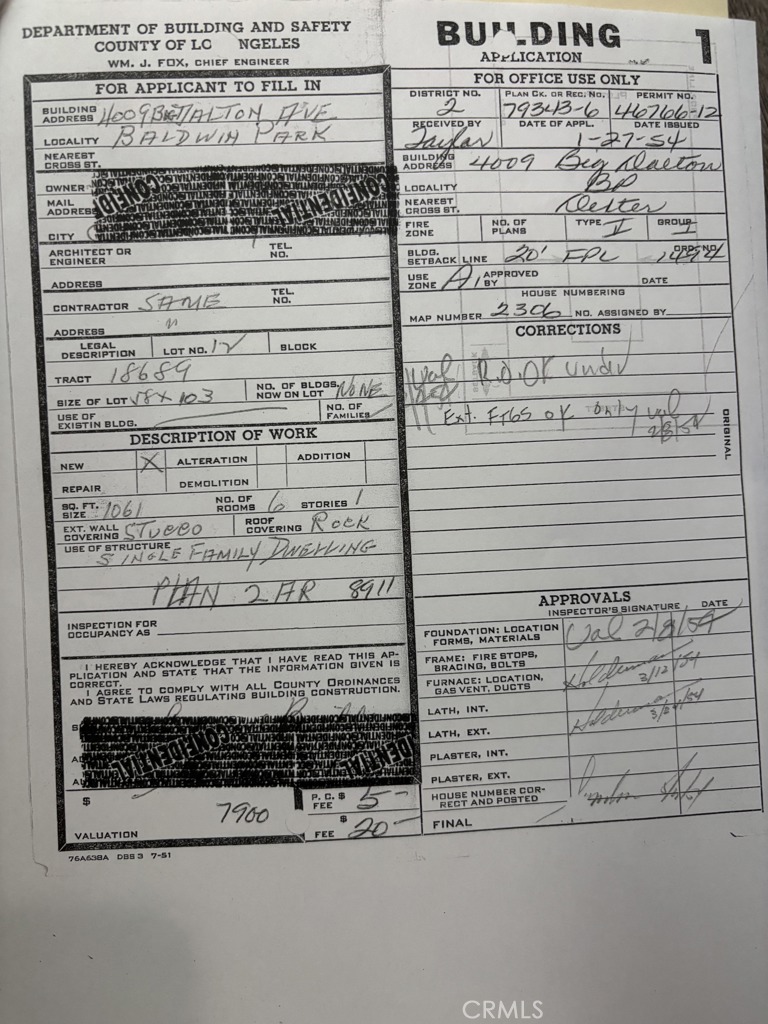 DEPARTMENT OF BUILDING AND SAFETY
COUNTY OF LO NGELES
WM. J. FOX, CHIEF ENGINEER
FOR APPLICANT TO FILL IN
BUILDING ADDRESS 4009 BIG DALTON AVE
LOCALITY BALDWIN PARK
NEAREST CROSS ST.
OWNER
MAIL ADDRESS
CITY
CONFIDENTIAL
ARCHITECT OR ENGINEER TEL. NO.
ADDRESS
CONTRACTOR SAME TEL. NO.
ADDRESS "
LEGAL DESCRIPTION LOT NO. 12 BLOCK
TRACT 18689
SIZE OF LOT 58 x 103 NO. OF BLDGS. NOW ON LOT NONE
USE OF EXISTIN BLDG. NO. OF FAMILIES
DESCRIPTION OF WORK
NEW X ALTERATION ADDITION
REPAIR DEMOLITION
SQ. FT. SIZE 1061 NO. OF ROOMS 6 STORIES 1
EXT. WALL COVERING STUCCO ROOF COVERING ROCK
USE OF STRUCTURE SINGLE FAMILY DWELLING
PLAN 2 AR 8911
INSPECTION FOR OCCUPANCY AS
I HEREBY ACKNOWLEDGE THAT I HAVE READ THIS AP-
PLICATION AND STATE THAT THE INFORMATION GIVEN IS
CORRECT.
I AGREE TO COMPLY WITH ALL COUNTY ORDINANCES
AND STATE LAWS REGULATING BUILDING CONSTRUCTION.
CONFIDENTIAL
$ 7900 P. C. FEE $ 5-
VALUATION FEE $ 20-
76A638A DBS 3 7-51
BUILDING
APPLICATION
1
FOR OFFICE USE ONLY
DISTRICT NO. 2 PLAN CK. OR REC. NO. 79343-6 PERMIT NO. 46766-12
RECEIVED BY Taylor DATE OF APPL. DATE ISSUED 1-27-54
BUILDING ADDRESS 4009 Big Dalton
LOCALITY BP
NEAREST CROSS ST. Dexter
FIRE ZONE NO. OF PLANS TYPE V GROUP I
BLDG. SETBACK LINE 20' FPL ORD. NO. 1494
USE ZONE A1 APPROVED BY DATE
HOUSE NUMBERING
MAP NUMBER 2306 NO. ASSIGNED BY
CORRECTIONS
R.O. OK under
Ext. Ftgs ok only Val
2/8/54
ORIGINAL
APPROVALS
INSPECTOR'S SIGNATURE DATE
FOUNDATION: LOCATION FORMS, MATERIALS Val 2/8/54
FRAME: FIRE STOPS, BRACING, BOLTS
FURNACE: LOCATION, GAS VENT, DUCTS 3/12/54
LATH, INT.
LATH, EXT.
PLASTER, INT.
PLASTER, EXT.
HOUSE NUMBER COR-
RECT AND POSTED
FINAL
CRMLS